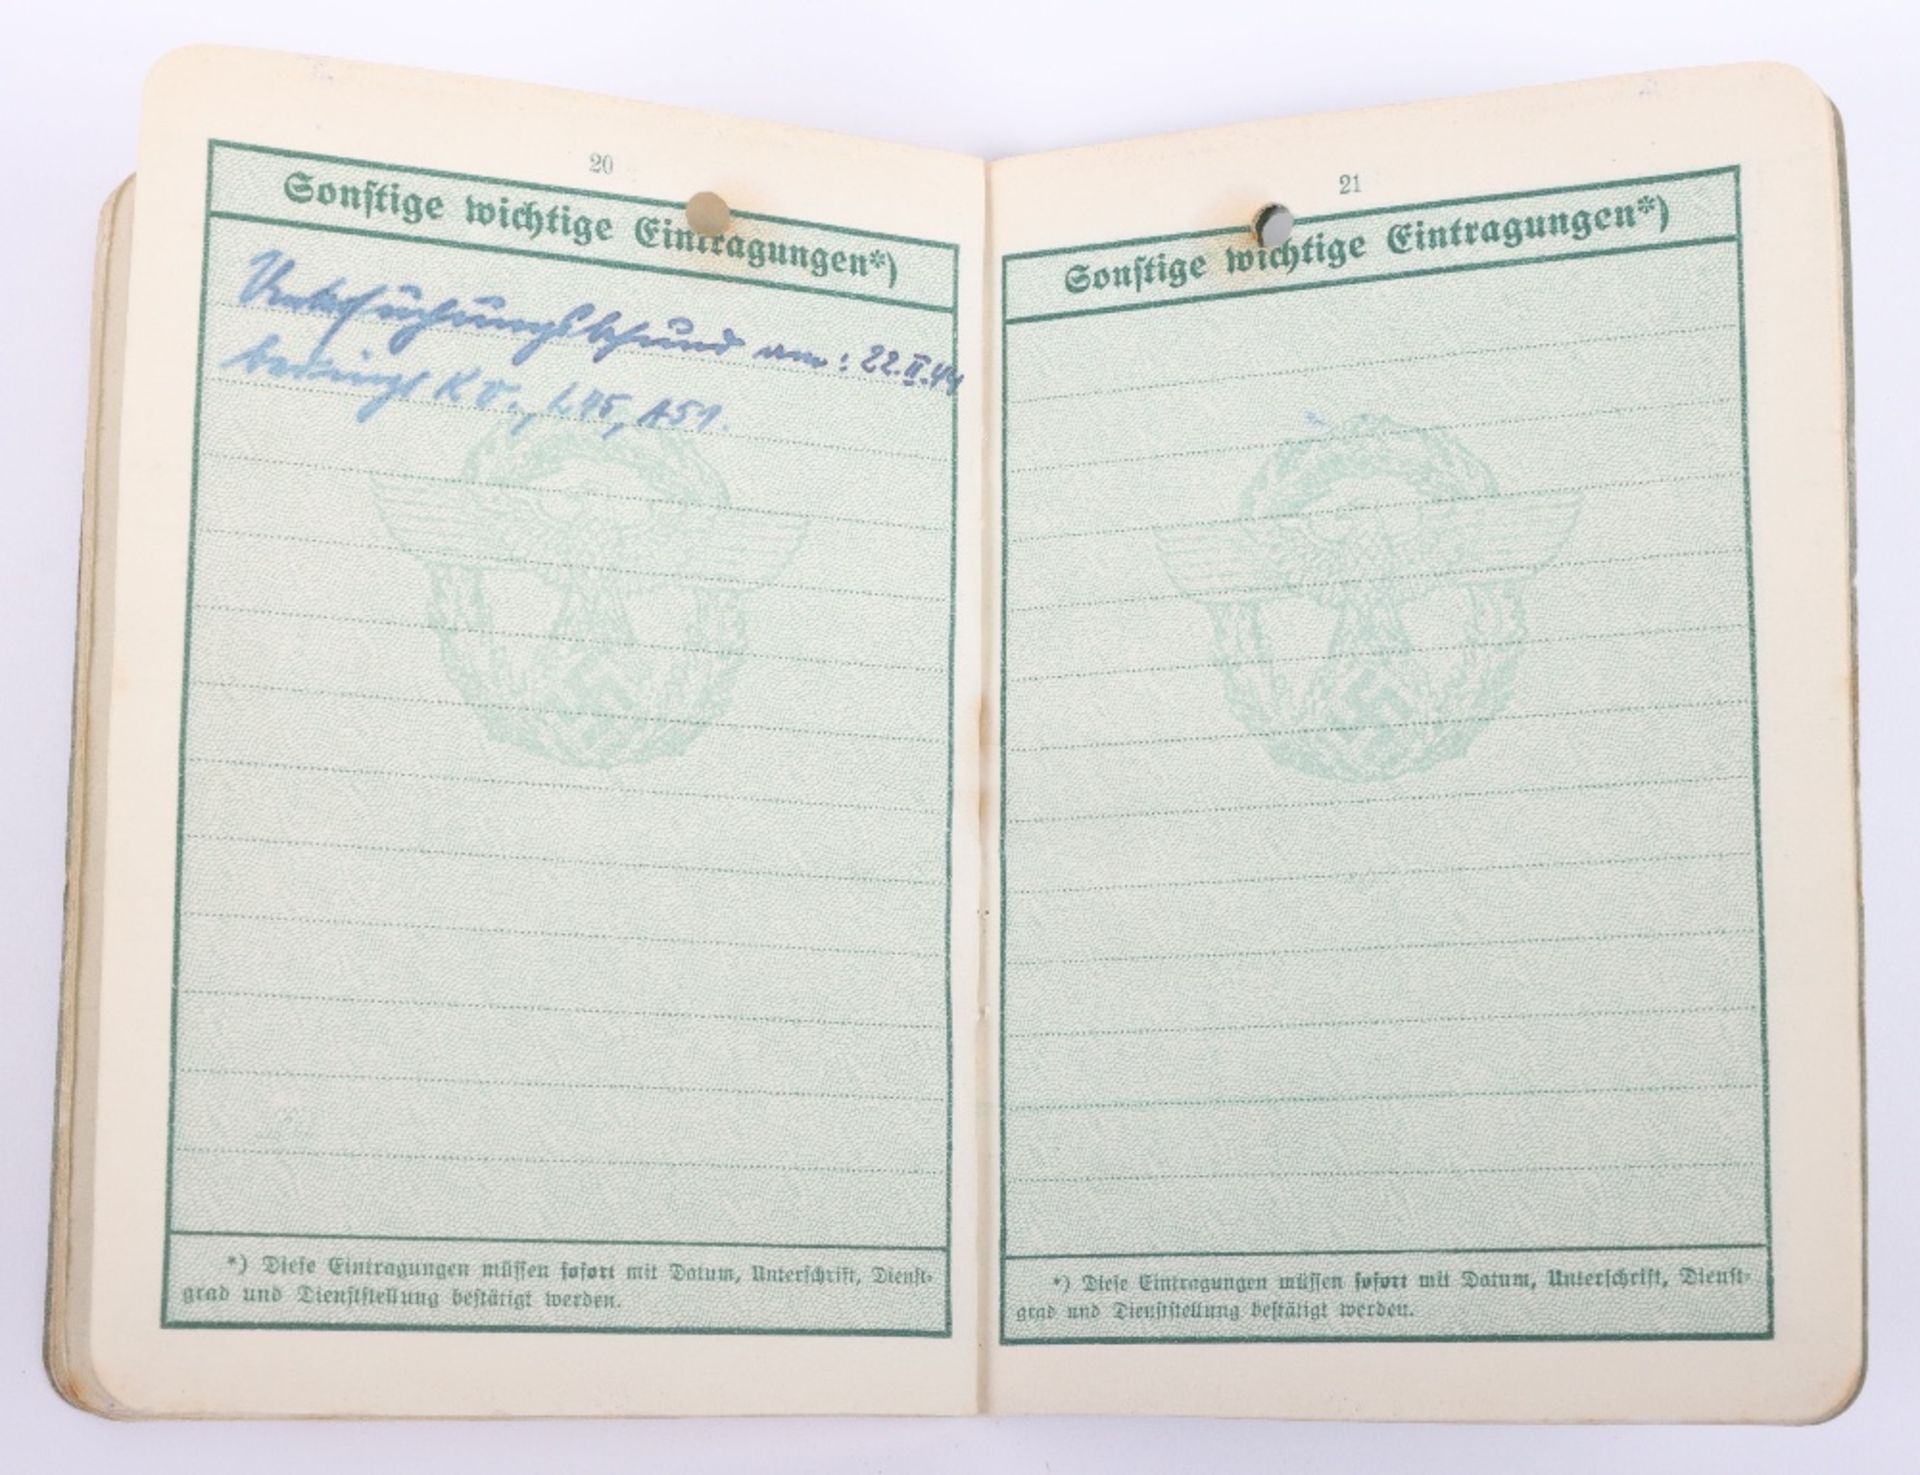 20
Sonstige wichtige Eintragungen*)
Untersuchungsbefund am: 22.II.44
bedingt KV., L45, A51.
*) Diese Eintragungen müssen sofort mit Datum, Unterschrift, Dienst-
grad und Dienststellung bestätigt werden.
21
Sonstige wichtige Eintragungen*)
*) Diese Eintragungen müssen sofort mit Datum, Unterschrift, Dienst-
grad und Dienststellung bestätigt werden.